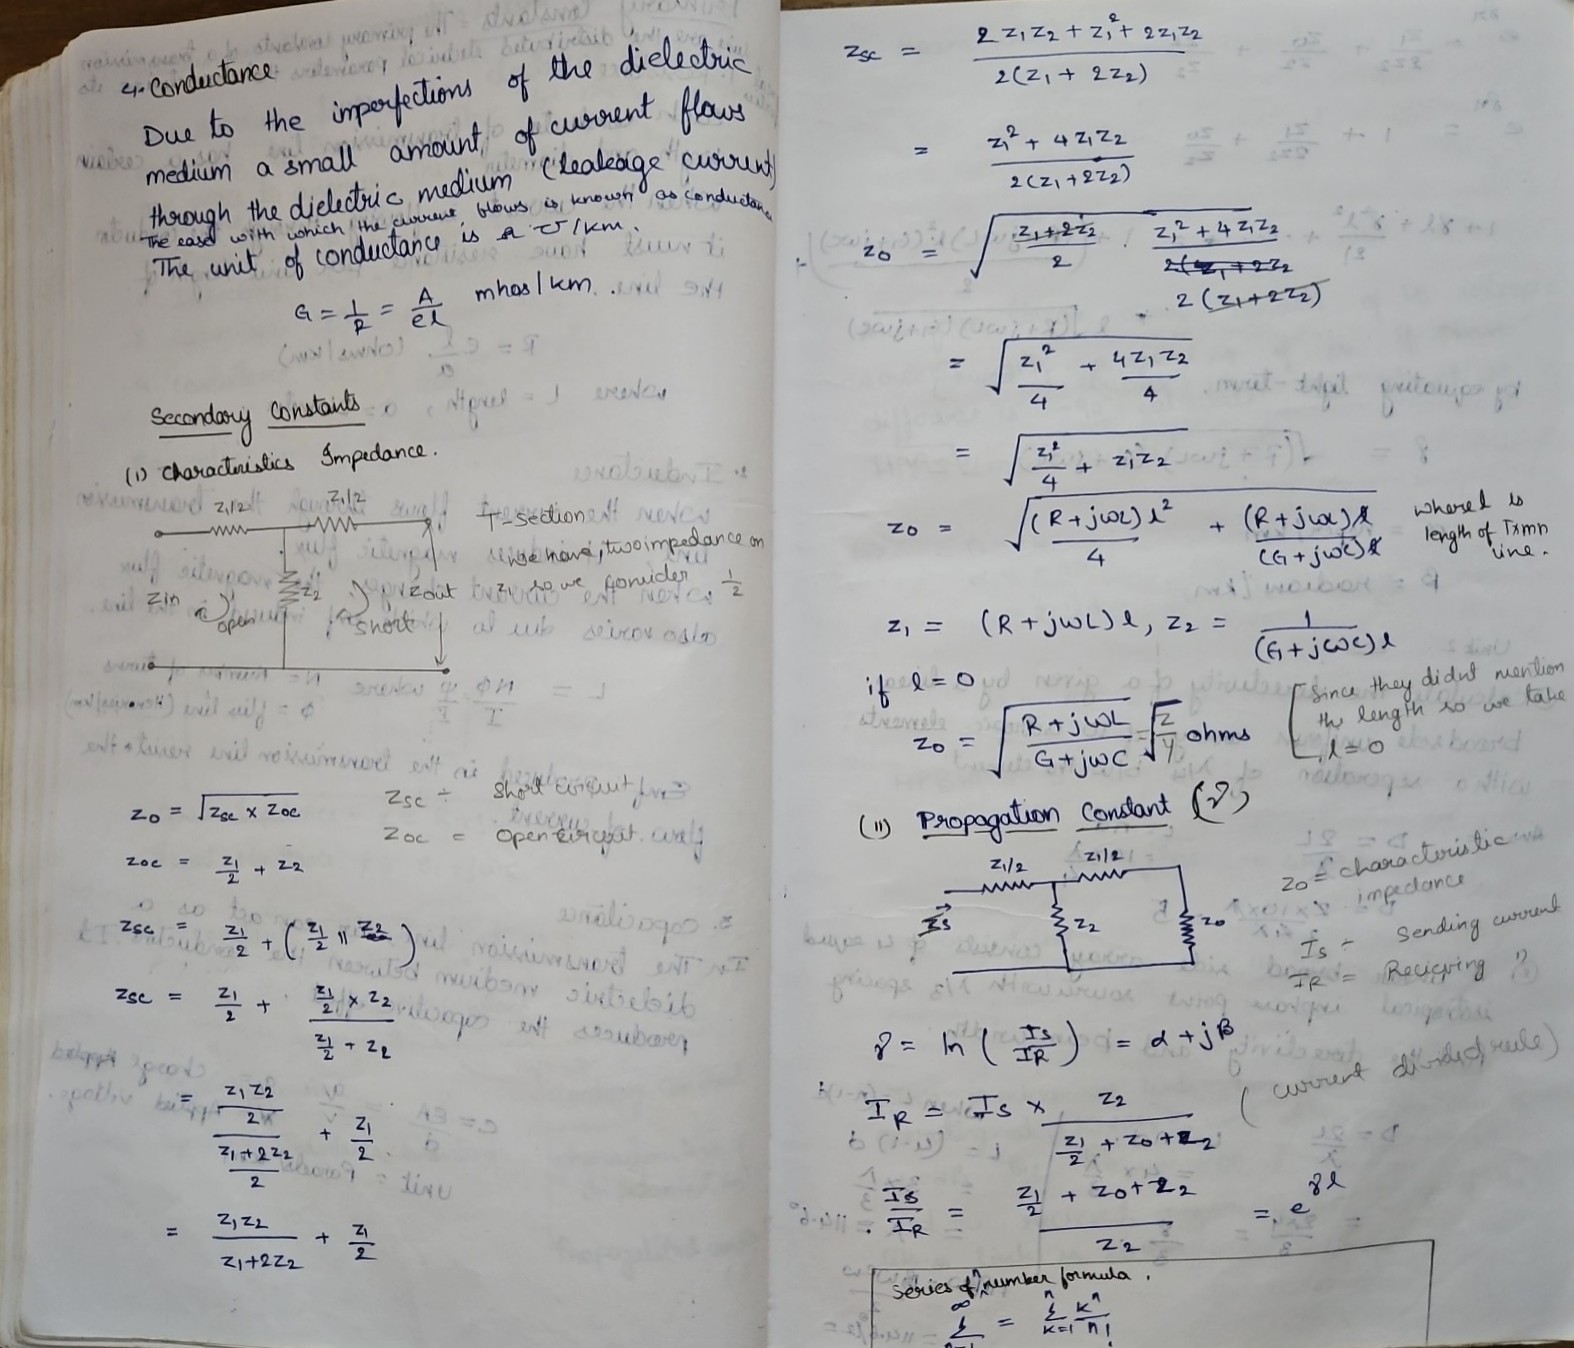 4. Conductance
Due to the imperfections of the dielectric
medium a small amount of current flows
through the dielectric medium (leakage current)
The ease with which the current flows is known as conductance
The unit of conductance is ℧/km.
G = 1/R = A/el mhos/km.
Secondary Constants
(1) Characteristics Impedance.
Z1/2 Z1/2
T-section
we have, two impedance on
Z1 so we consider 1/2
Zin open Z2 short Zout
Z0 = √(Zsc × Zoc) Zsc ÷ Short circuit
Zoc = Open circuit.
Zoc = Z1/2 + Z2
Zsc = Z1/2 + (Z1/2 || Z2)
Zsc = Z1/2 + (Z1/2 × Z2)/(Z1/2 + Z2)
= (Z1Z2/2)/((Z1+2Z2)/2) + Z1/2
= Z1Z2/(Z1+2Z2) + Z1/2
Zsc = (2Z1Z2 + Z1² + 2Z1Z2)/(2(Z1 + 2Z2))
= (Z1² + 4Z1Z2)/(2(Z1+2Z2))
Z0 = √((Z1+2Z2)/2 · (Z1² + 4Z1Z2)/(2(Z1+2Z2)))
= √(Z1²/4 + 4Z1Z2/4)
= √(Z1²/4 + Z1Z2)
Z0 = √((R+jωL)l²/4 + (R+jωL)l/(G+jωC)l) where l is
length of Txmn
line.
Z1 = (R+jωL)l, Z2 = 1/(G+jωC)l
if l = 0
Z0 = √((R+jωL)/(G+jωC)) = √(Z/Y) ohms
[Since they didnt mention
the length so we take
l = 0
(11) Propagation Constant (γ)
Z1/2 Z1/2
Z2 Z0
Z0 = characteristic
impedance
Is ÷ Sending current
IR = Recieving "
γ = ln (Is/IR) = α + jβ
(current divided rule)
IR = Is × Z2/(Z1/2 + Z0 + Z2)
Is/IR = (Z1/2 + Z0 + Z2)/Z2 = e^γl
Series of number formula.
∞ Σ = n Σ k=1 k^n/n!